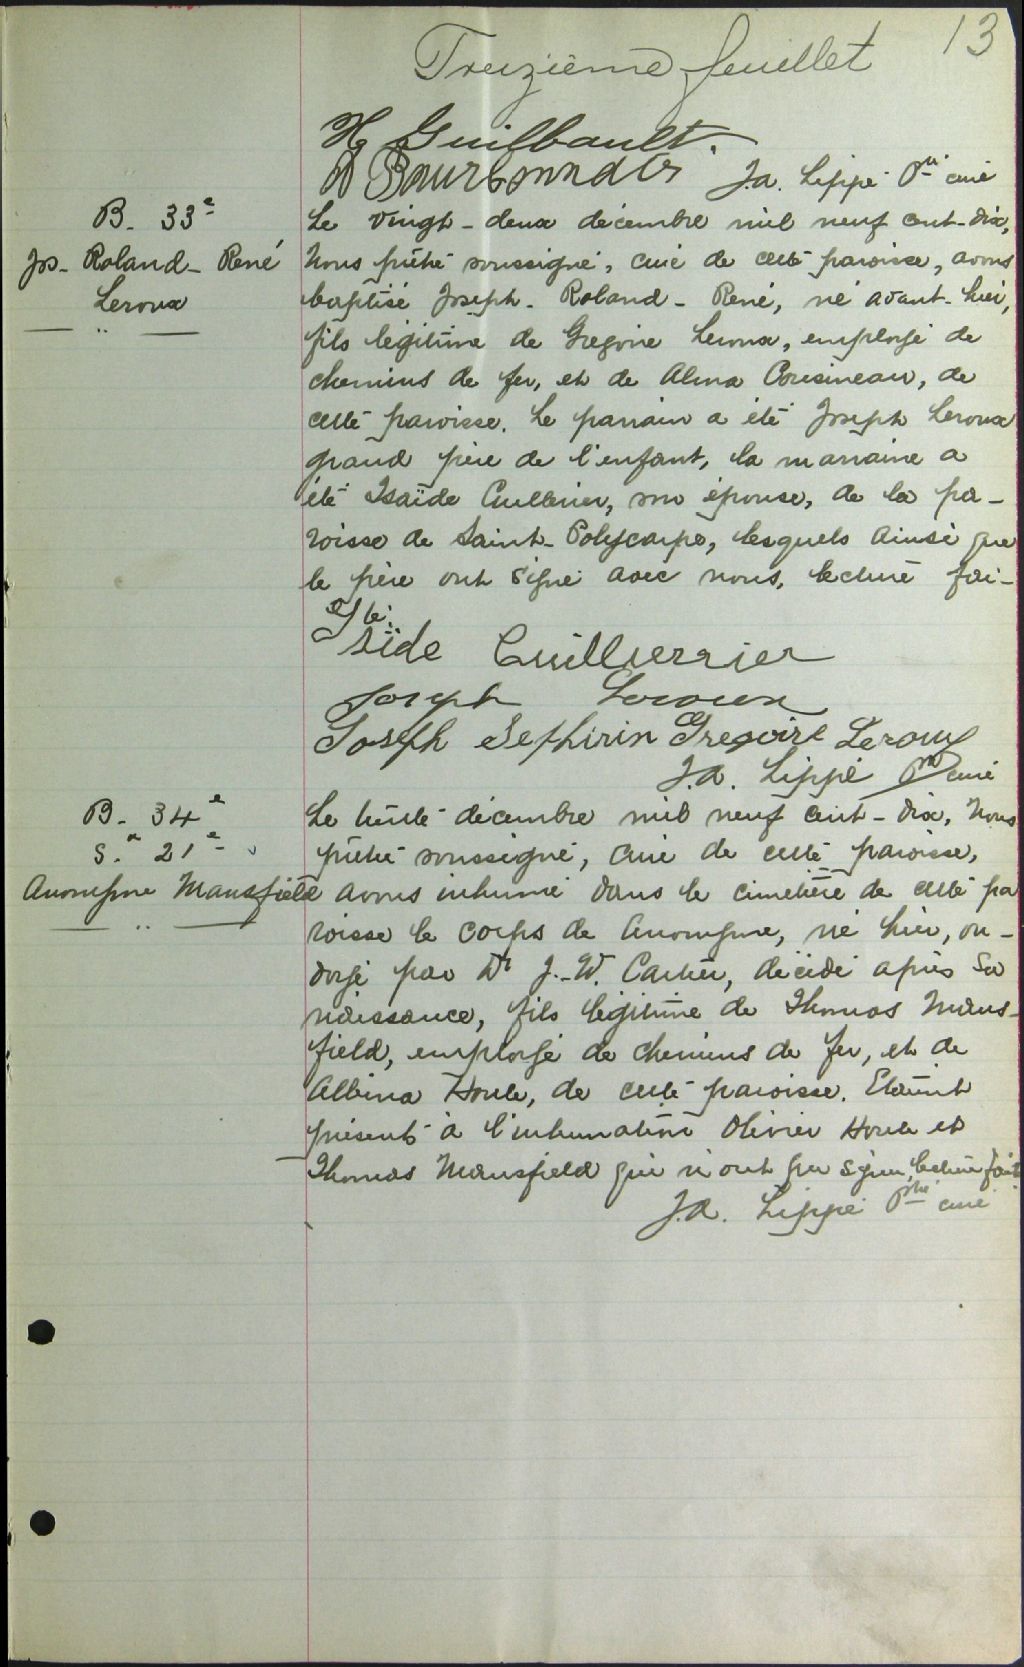 13
Treizième feuillet
H Guilbault.
D Bourbonnais J.A. Lippé Ptre curé
B. 33e
Jos- Roland- René
Leroux
Le vingt-deux décembre mil neuf cent-dix,
Nous prêtre soussigné, curé de cette paroisse, avons
baptisé Joseph- Roland- René, né avant-hier,
fils légitime de Gregoire Leroux, employé de
chemins de fer, et de Alma Cousineau, de
cette paroisse. Le parrain a été Joseph Leroux
grand père de l'enfant, la marraine a
été Isaïde Cuillerier, son épouse, de la pa-
roisse de Saint-Polycarpe, lesquels ainsi que
le père ont signé avec nous, lecture fai-
te.
side Cuillierrier
Joseph Leroux
Joseph Sethirin Gregoire Leroux
J.A. Lippé Ptre curé
B- 34e
S. 21e
Anonyme Mansfield
Le trente décembre mil neuf cent-dix, Nous
prêtre soussigné, curé de cette paroisse,
avons inhumé dans le cimetière de cette pa
roisse le corps de Anonyme, né hier, on-
doyé par Dr J.-W. Cartier, décédé après sa
naissance, fils légitime de Thomas Mans-
field, employé de chemins de fer, et de
Albina Houle, de cette paroisse. Etaient
présents à l'inhumation Olivier Houle et
Thomas Mansfield qui n'ont pu signer, lecture faite
J.A. Lippé Ptre curé